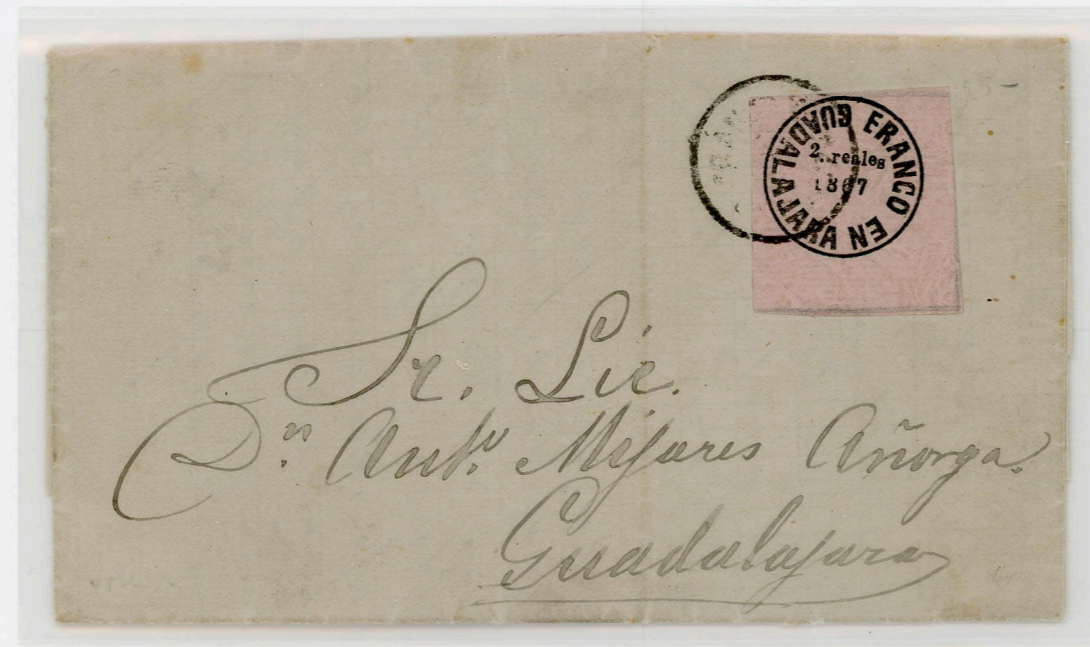 ERANCO EN GUADALAJARA
2. reales
1867
Sr. Lic.
Dn. Anto. Mijares Añorga.
Guadalajara